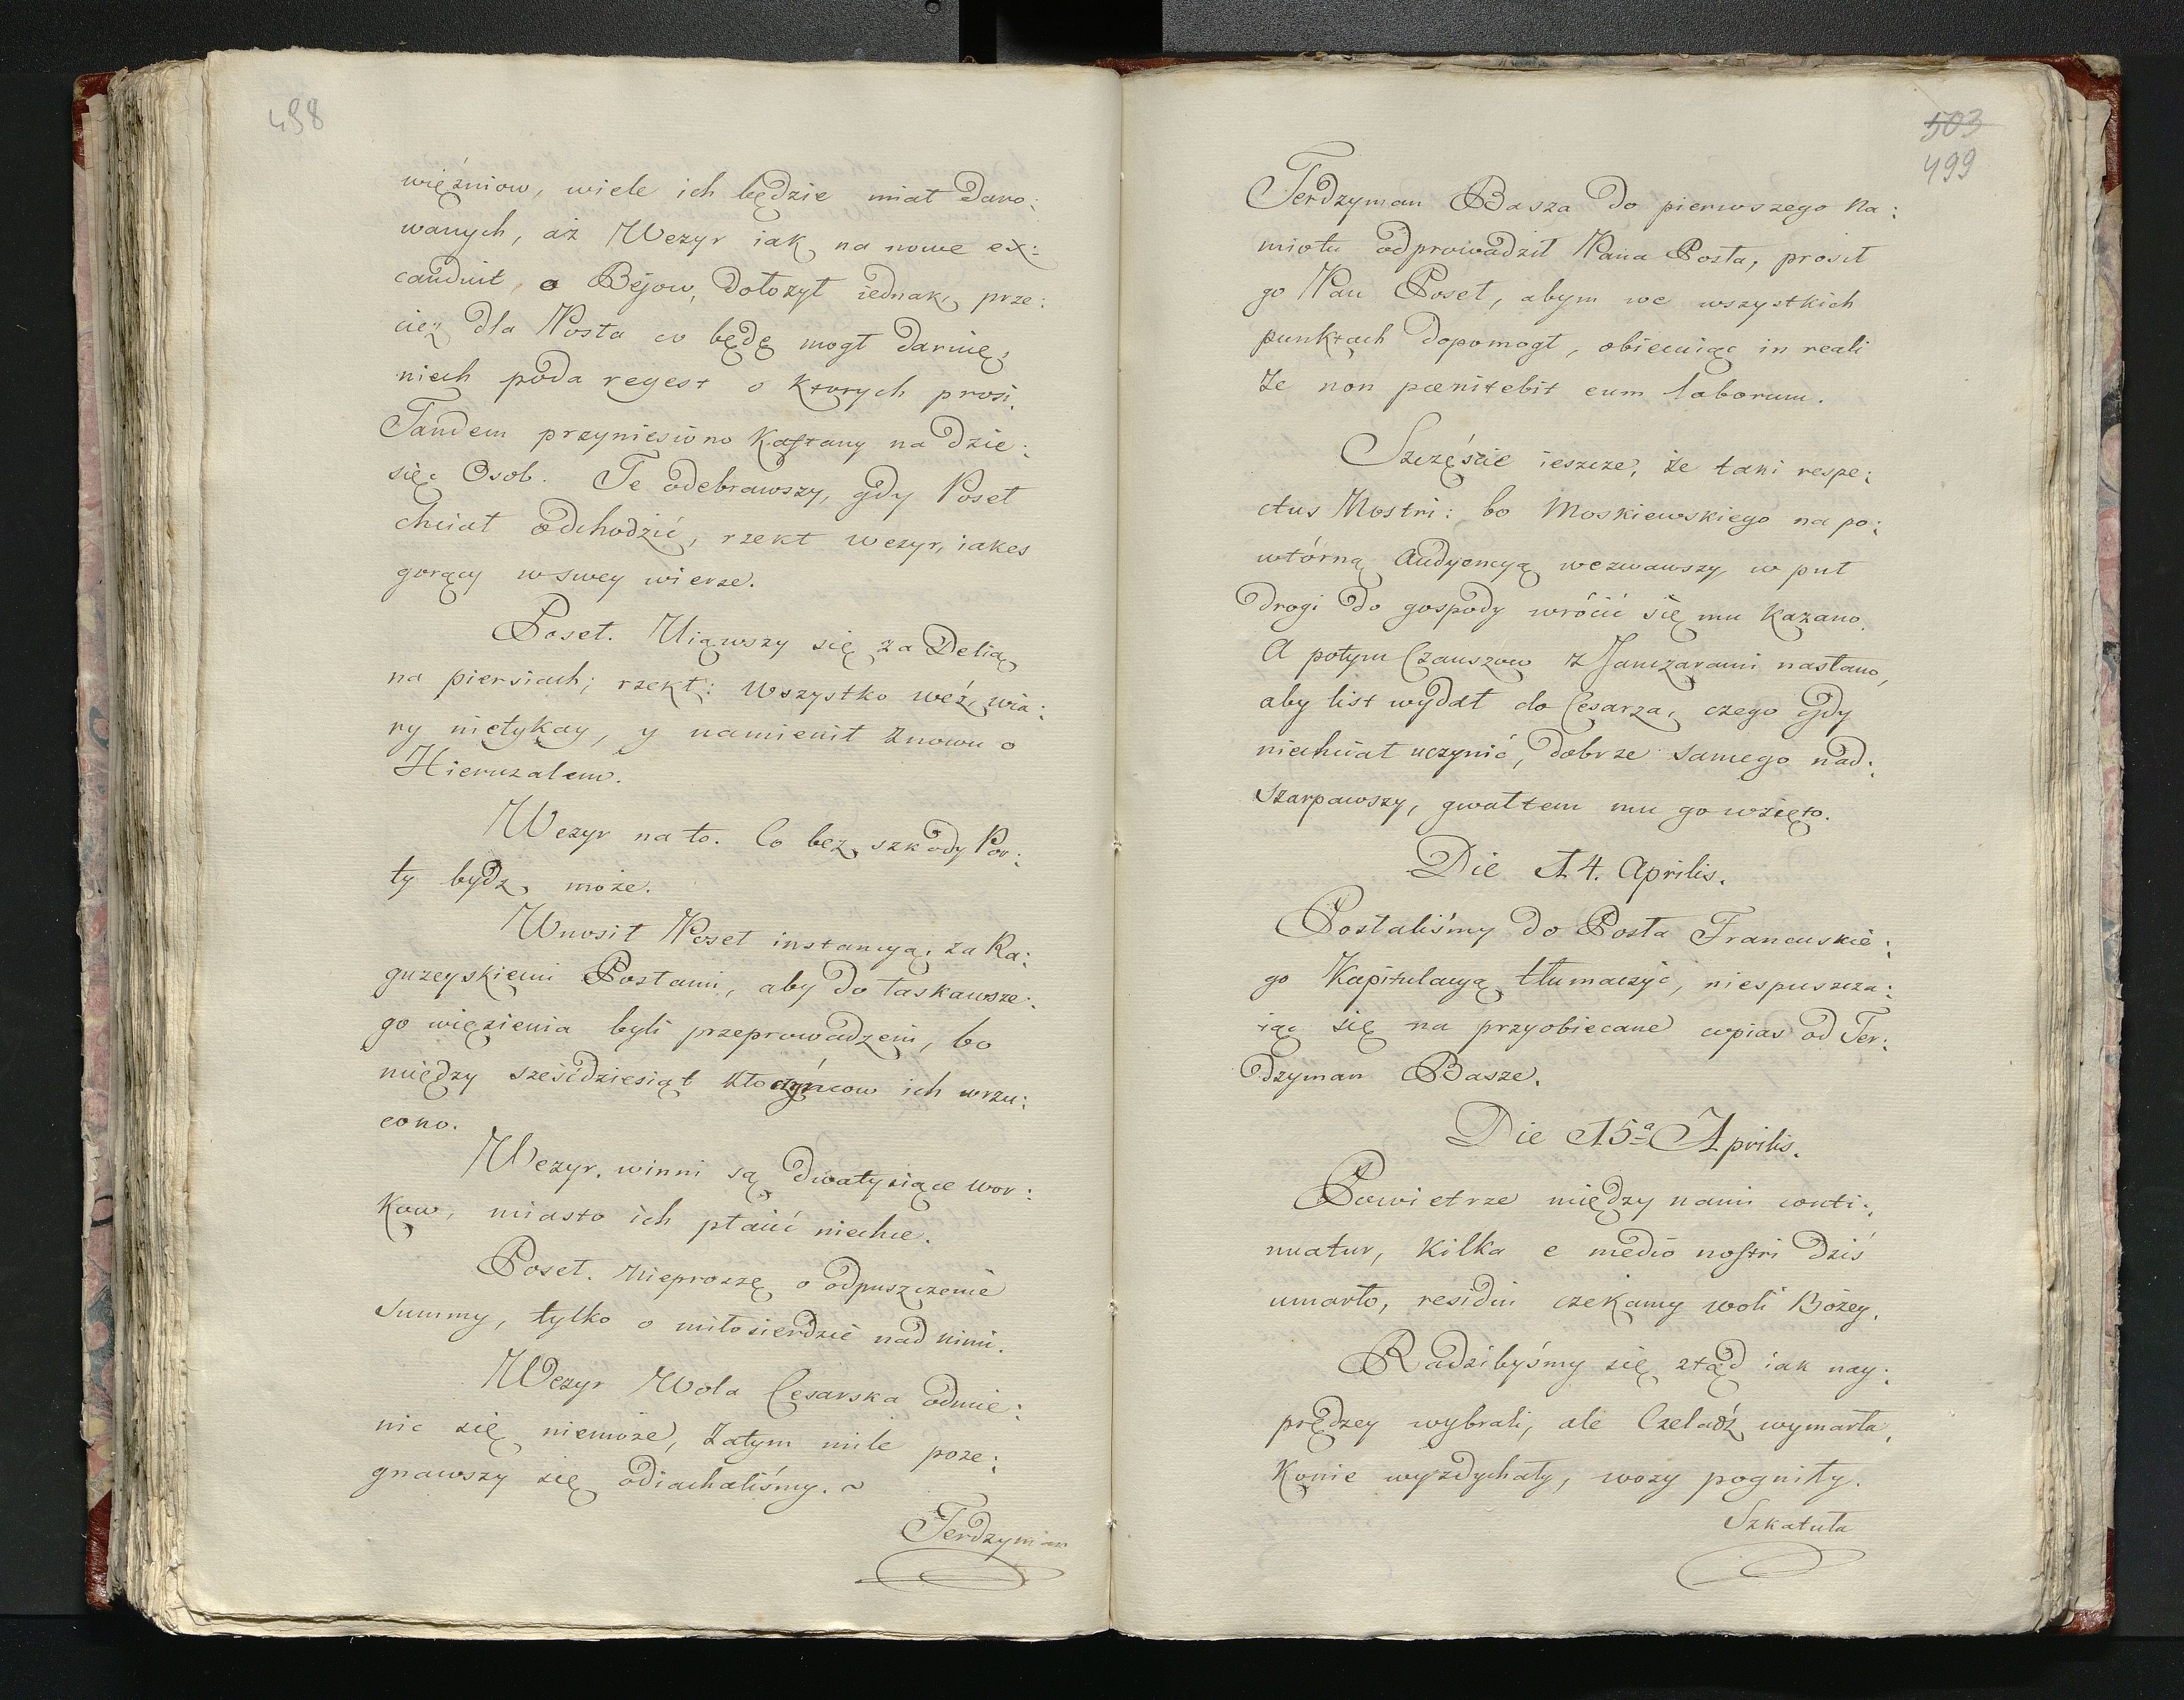 498
więźniow, wiele ich będzie miał daro:
wanych, aż Wezyr iak na nowe ex:
canduit, o Bejow, dołożył iednak, prze:
cież dla Posła co będę mogł daruię,
niech poda regest o ktorych prosi.
Tandem przyniesiono kaftany na dzie:
sięc Osob. Te odebrawszy, gdy Poseł
chciał odchodzić, rzekł wezyr, iakes
gorący w swey wierze.
Poseł. Uiąwszy się za Delią
na piersiach; rzekł: wszystko weź, wia:
ry nietykay, y namienił znowu o
Hieruzalem.
Wezyr na to. Co bez szkody Por:
ty bydz może.
Wnosił Poseł instancyą, za Ra:
guzeyskiemi Posłami, aby do łaskawsze:
go więzienia byli przeprowadzeni, bo
między sześćdziesiąt złoczyńcow ich wrzu:
cono.
Wezyr. winni są dwatysiące wor:
kow, miasto ich płaćić niechce.
Poseł. nieproszę o odpuszczenie
Summy, tylko o miłosierdzie nad nimi.
Wezyr Wola Cesarska odmie:
nic się niemoże, zatym mile poże:
gnawszy się odiachaliśmy.
Terdzyman
503
499
Terdzyman Basza do pierwszego Na:
miotu odprowadził Pana Posła, prosił
go Pan Poseł, abym we wszystkich
punktach dopomogł, obiecuiąc in reali
że non pœnitebit eum laborum.
Szczęście ieszcze, że tani respe:
ctus Nostri: bo Moskiewskiego na po:
wtórną Audyencyą wezwawszy, w puł
drogi do gospody wróćić się mu kazano.
A potym Czauszow z Janczarami nasłano,
aby list wydał do Cesarza, czego gdy
niechciał uczynić, dobrze samego nad:
szarpawszy, gwałtem mu go wzięto.
Die 14. Aprilis.
Posłaliśmy do Posła Francuskie:
go Kapitulacyą tłumaczyć, niespuszcza:
iąc się na przyobiecane copias od Ter:
dzyman Basze.
Die 15ª Aprilis.
Powietrze między nami conti:
nuatur, kilka e medio nostri dziś
umarło, residui czekamy woli Bożey.
Radzibyśmy się ztąd iak nay:
prędzey wybrali, ale Czeladź wymarła,
Konie wyzdychały, wozy pogniły.
Szkatuła